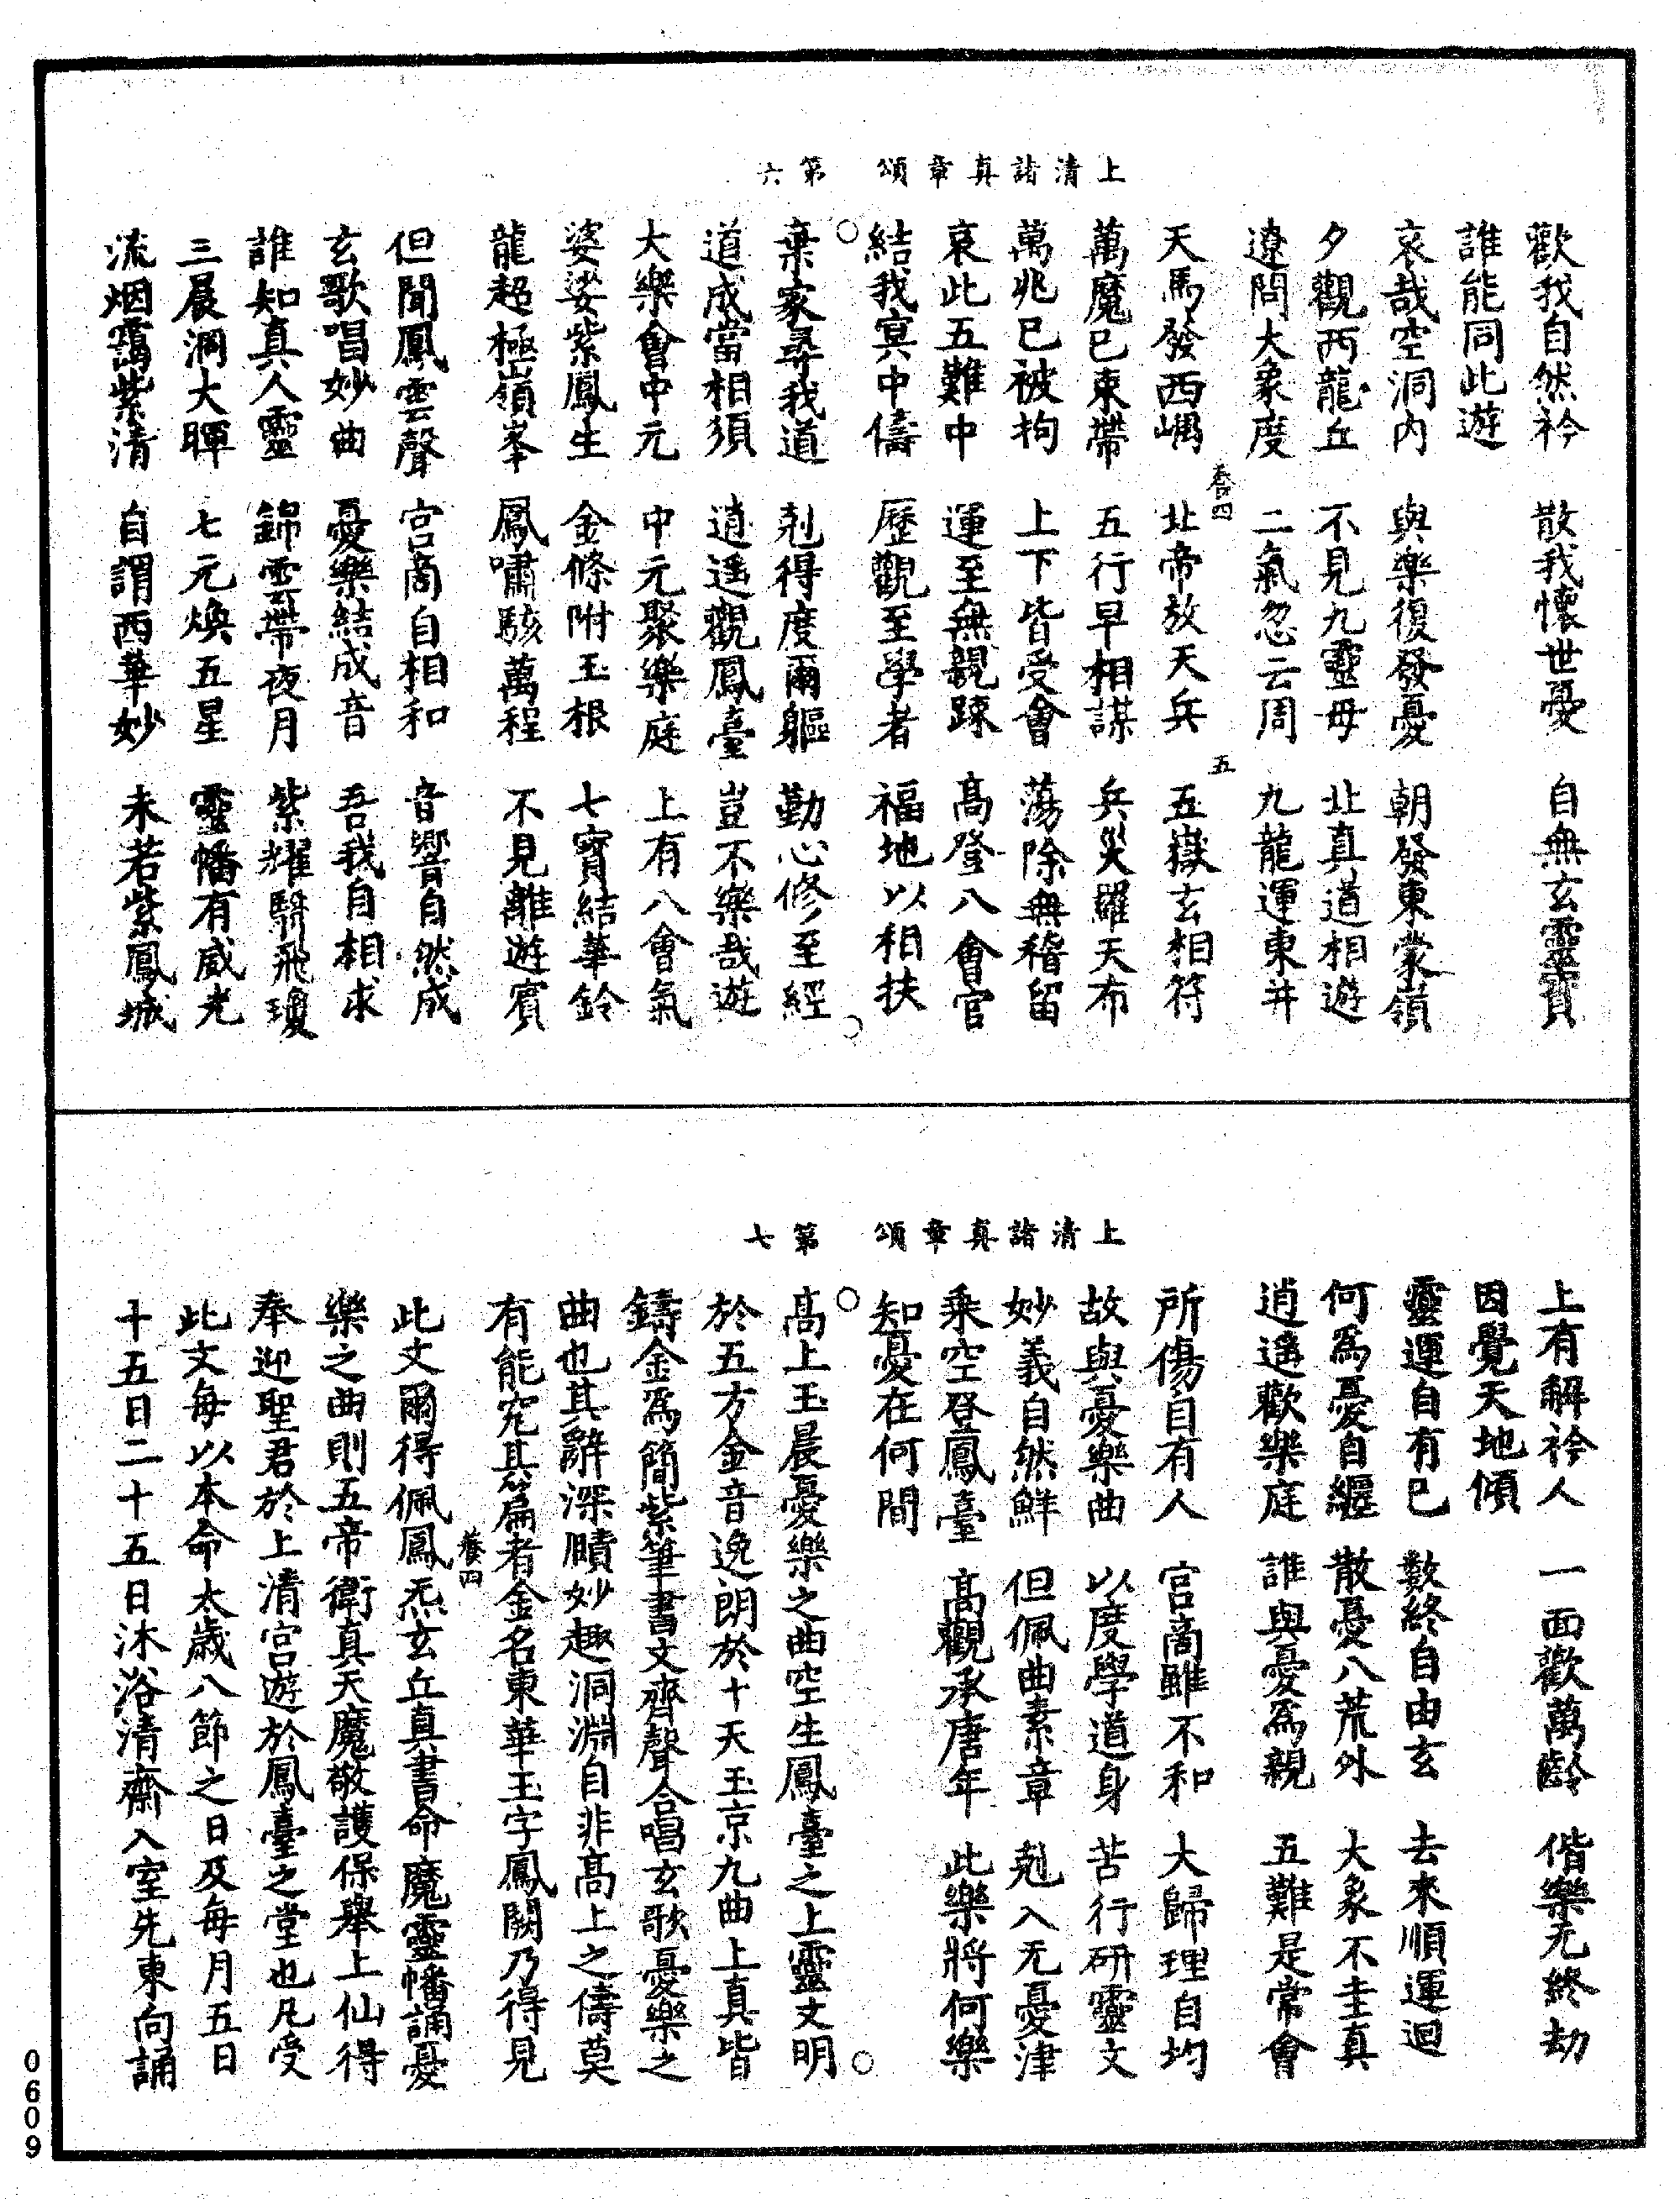 歡我自然衿　散我懷世憂　自無玄靈寶
誰能同此遊
哀哉空洞內　與樂復發憂　朝發東蒙嶺
夕觀西龍丘　不見九靈毋　北真道相遊
遼問大象度　二氣忽云周　九龍運東井
養四　五
天馬發西嵎　北帝放天兵　五嶽玄相符
萬魔已束帶　五行早相謀　兵災羅天布
萬兆已被拘　上下皆受會　蕩除無稽留
哀此五難中　運至無親踈　高登八會官
結我冥中儔　歷觀至學者　福地以相扶
上清諸真章頌　第六
棄家尋我道　剋得度爾軀　勤心修至經
道成當相須　逍遥觀鳳臺　豈不樂哉遊
大樂會中元　中元聚樂庭　上有八會氣
婆娑紫鳳生　金條附玉根　七寶結華鈴
龍超極嶺峯　鳳嘯駭萬程　不見離遊賓
但聞鳳雲聲　宮商自相和　音響自然成
玄歌唱妙曲　憂樂結成音　吾我自相求
誰知真人靈　錦雲帶夜月　紫耀騎飛瓊
三晨洞大暉　七元煥五星　靈幡有威光
流烟靄紫清　自謂西華妙　未若紫鳳城
上有解衿人　一面歡萬齡　偕樂无終劫
因覺天地傾
靈運自有已　數終自由玄　去來順運迴
何爲憂自纒　散憂八荒外　大象不圭真
逍遙歡樂庭　誰與憂爲親　五難是常會
所傷自有人　宮商雖不和　大歸理自均
故與憂樂曲　以度學道身　苦行研靈文
妙義自然鮮　但佩曲素章　剋入无憂津
乘空登鳳臺　高觀承唐年　此樂將何樂
知憂在何間
上清諸真章頌　第七
高上玉晨憂樂之曲空生鳳臺之上靈文明
於五方金音逸朗於十天玉京九曲上真皆
鑄金爲簡紫筆書文齊聲合唱玄歌憂樂之
曲也其辭深賾妙趣洞淵自非高上之儔莫
有能究其篇者金名東華玉字鳳闕乃得見
養四
此文爾得佩鳳炁玄丘真書命魔靈幡誦憂
樂之曲則五帝衛真天魔敬護保舉上仙得
奉迎聖君於上清宮遊於鳳臺之堂也凡受
此文每以本命太歲八節之日及每月五日
十五日二十五日沐浴清齋入室先東向誦
0609